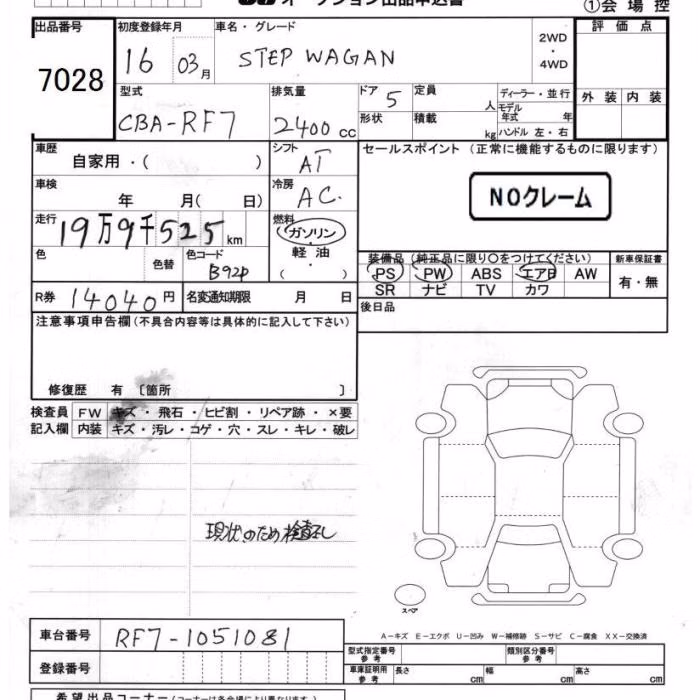 オークション出品申込書
①会場控
出品番号 初度登録年月 車名・グレード 評価点
7028 16 03月 STEP WAGAN 2WD・4WD
型式 排気量 ドア 定員 ディーラー・並行 外装 内装
CBA-RF7 2400cc 5 人 モデル年式 年
形状 積載 kg ハンドル 左・右
車歴 シフト セールスポイント (正常に機能するものに限ります)
自家用・( ) AT
車検 冷房 NOクレーム
年 月(日) AC.
走行 燃料
19万9千525km ガソリン
軽油
・( )
色 色替 色コード 装備品 (純正品に限り○をつけてください) 新車保証書
B92P PS PW ABS エアB AW 有・無
SR ナビ TV カワ
R券 14040円 名変通知期限 月 日 後日品
注意事項申告欄 (不具合内容等は具体的に記入して下さい)
修復歴 有 〔箇所 〕
検査員 FW キズ・飛石・ヒビ割・リペア跡・×要
記入欄 内装 キズ・汚レ・コゲ・穴・スレ・キレ・破レ
現状のため検査なし
スペア
A-キズ E-エクボ U-凹み W-補修跡 S-サビ C-腐食 XX-交換済
車台番号 RF7-1051081
型式指定番号 参考 類別区分番号 参考
登録番号 車庫証明用 参考 長さ cm 幅 cm 高さ cm
希望出品コーナー (コーナーは各会場により異なります。)